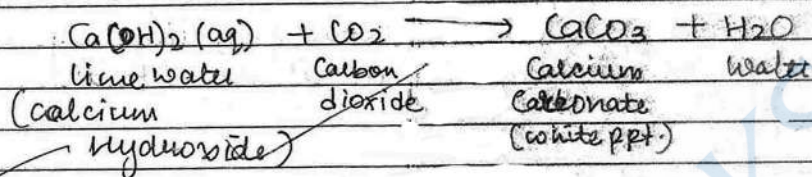 Ca(OH)2 (aq) + CO2 → CaCO3 + H2O
lime water Carbon Calcium Water
(calcium dioxide Carbonate
Hydroxide) (white ppt.)